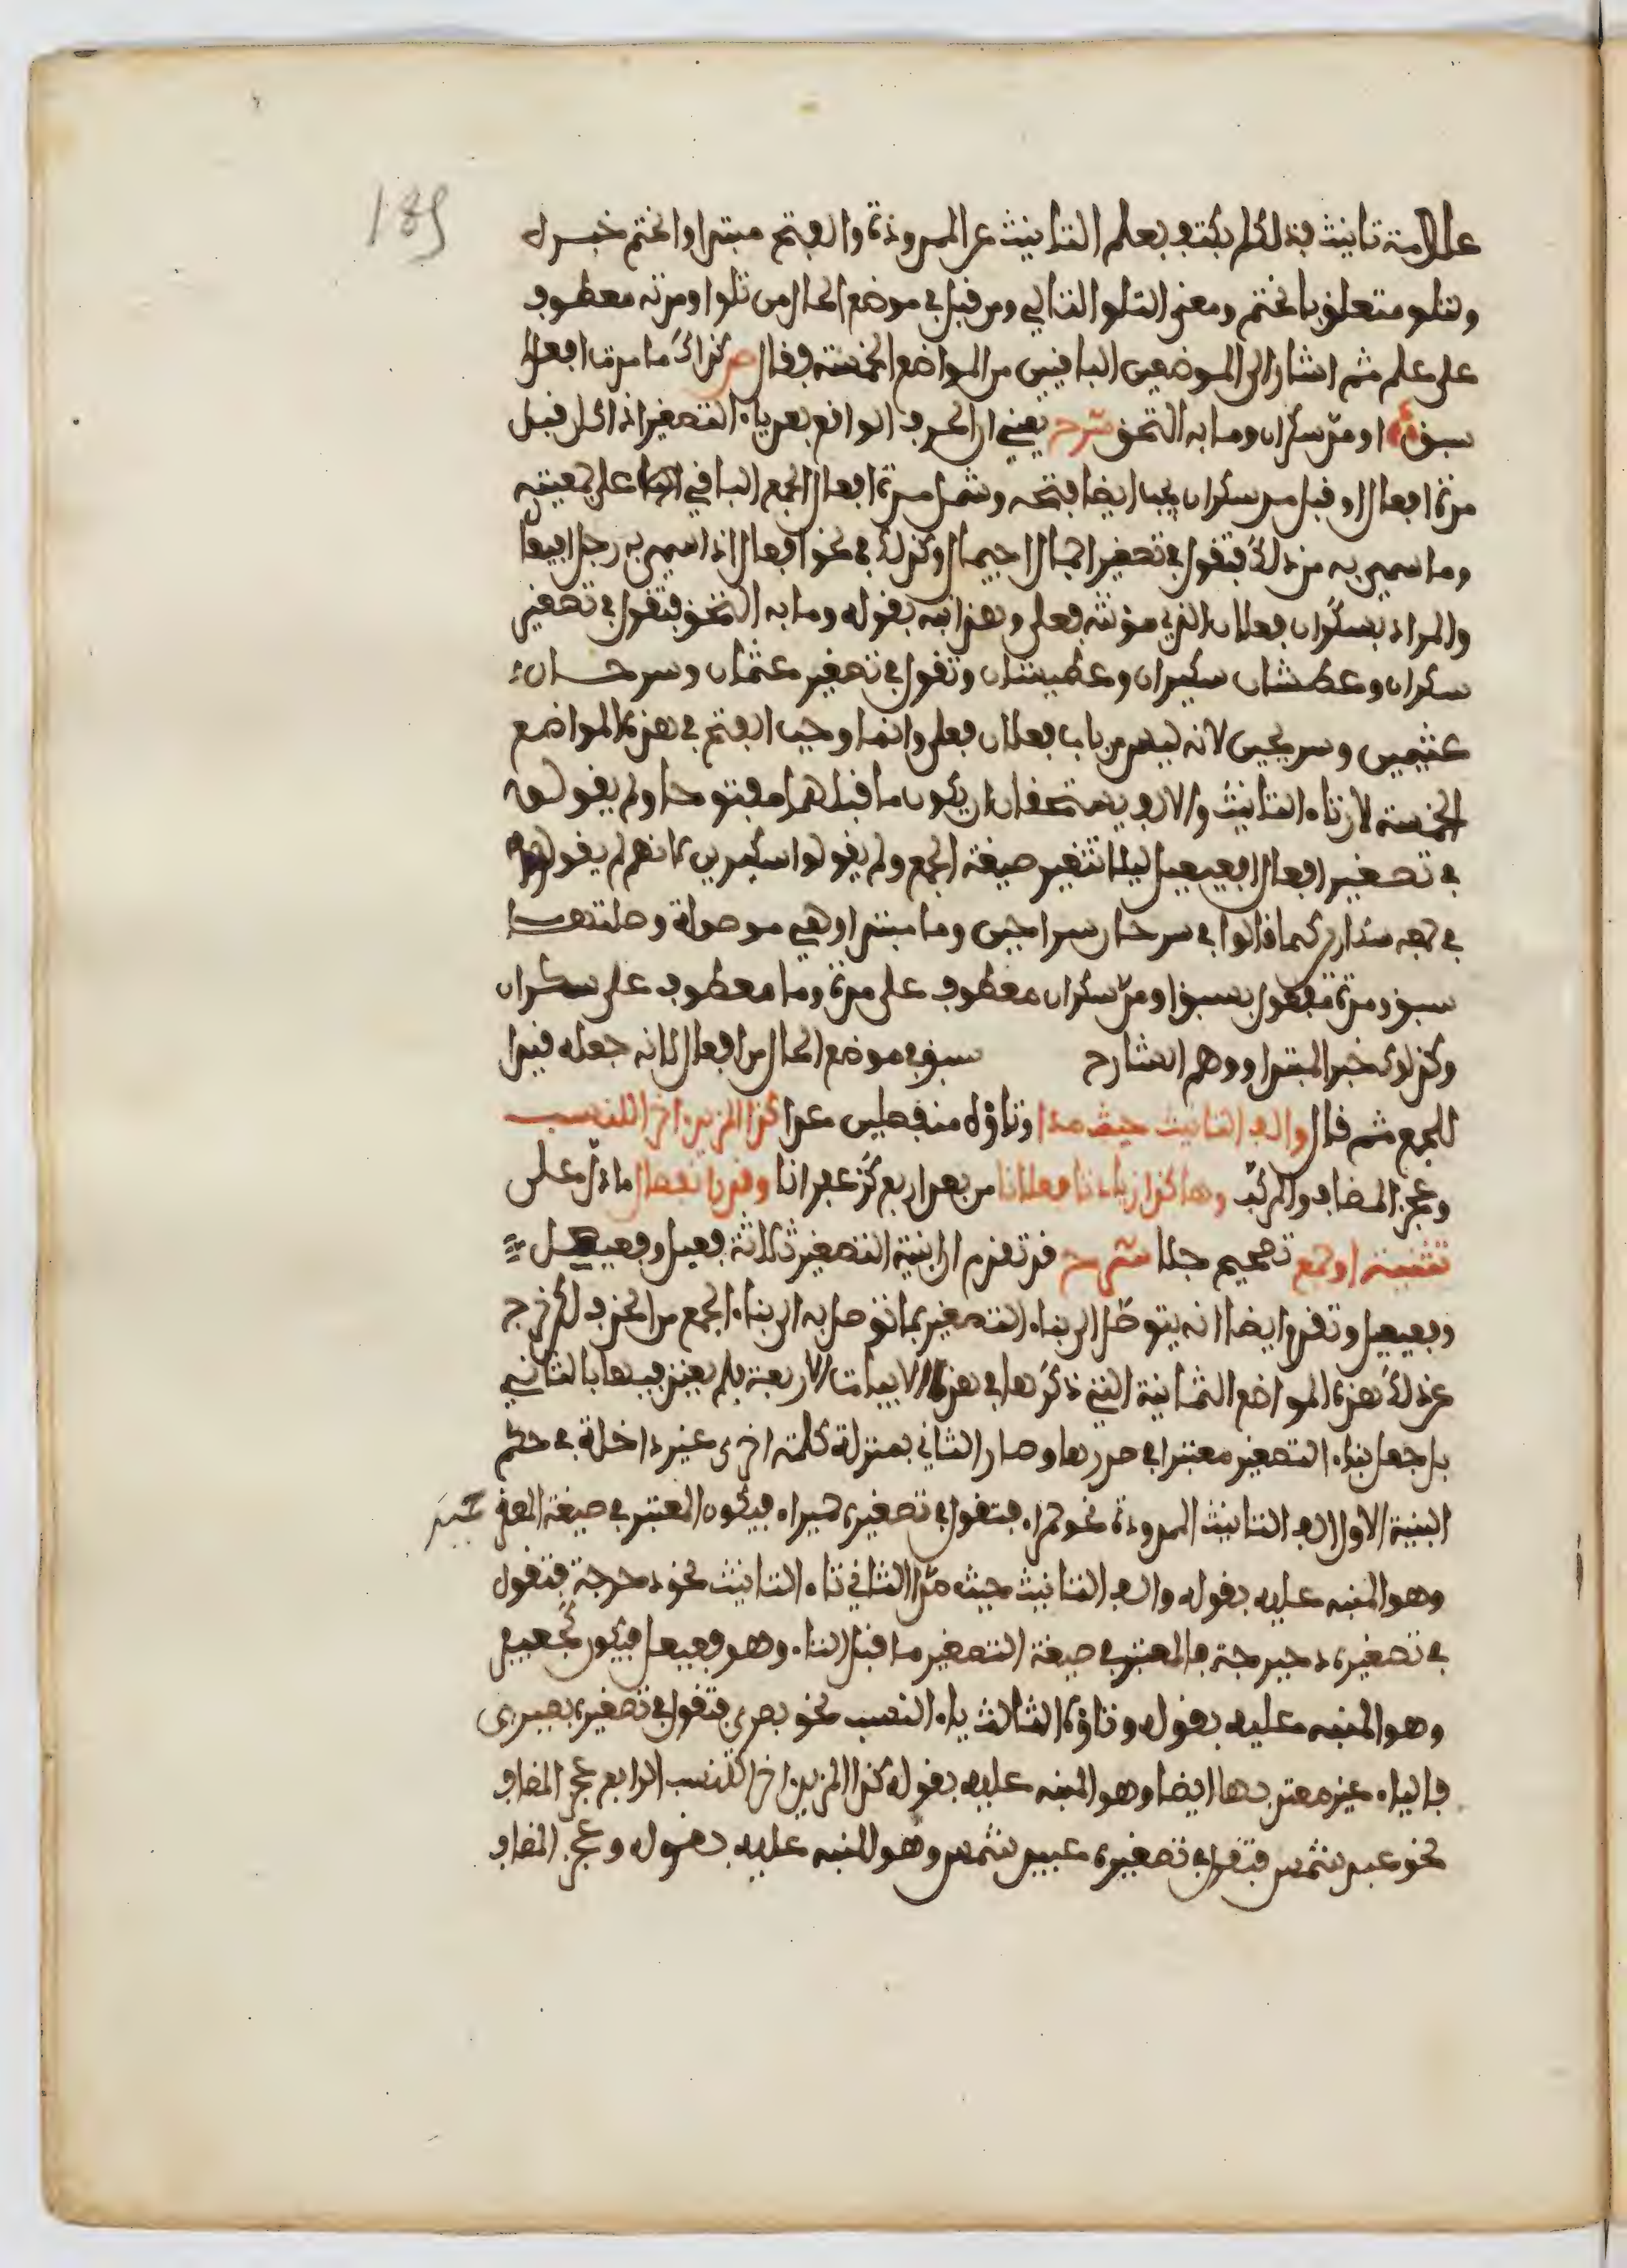 189
علامة تانيث فلذلك لم يكتف بعلم التانيث عن المدودة والفتح مبتدا وانحتم خبر ل
ولتلو متعلق بانحتم ومعنى التلو التالي ومن قبل في موضع الحال من تلو او مدته معطوف
على علم ثم اشار الى الموضعين الباقيين من المواضع الخمسة فقال ص كذاك ما مدة افعال
سبق او مد سكران وما به التحق شرح يعني ان الحرف الواقع بعد ياء التصغير اذا كان قبل
مدة افعال او قبل مد سكران يجب ايضا فتحه وشمل مدة افعال الجمع الباقي على جمعيته
وما سمي به من ذلك فتقول في تصغير اجمال اجيمال وكذلك في نحو افعال اذا سمي به رجل ايضا
والمراد بسكران فعلان الذي مؤنثه فعلى وهذا نبه بقوله وما به التحق فتقول في تصغير
سكران وعطشان سكيران وعطيشان وتقول في تصغير عثمان وسرحان
عثيمين وسريحين لانه ليس من باب فعلان فعلى وانما وجب الفتح في هذه المواضع
الخمسة لان تاء التانيث والالف يستحقان ان يكون ما قبلهما مفتوحا ولم يقولوا
في تصغير افعال افيعيل ليلا تتغير صيغة الجمع ولم يقولوا سكيرين كانهم لم يقولوا
في جمعه سكارين كما قالوا في سرحان سراحين وما مبتدا وهي موصولة وصلتها
سبق ومدة مفعول بسبق او مد سكران معطوف على مدة وما معطوف على سكران
وكذلك خبر المبتدا ووهم الشارح سبق في موضع الحال من افعال لانه جعله قيدا
للجمع ثم قال والف التانيث حيث مدا وتاؤه منفصلين عدا كذا المزيد اخرا للنسب
وعجز المضاف والمركب وهاكذا زيادتا فعلانا من بعد اربع كزعفرانا وقدر انفصال ما دل على
تثنية او جمع تصحيح جلا شرح قد تقدم ان ابنية التصغير ثلاثة فعيل وفعيعل
وفعيعيل وتقدم ايضا انه يتوصل الى بناء التصغير بما توصل به الى بناء الجمع من الحذف لكن خرج
عن ذلك هذه المواضع الثمانية التي ذكرها في هذه الابيات الاربعة فلم يعتد فيها بالثاني
بل جعل بناء التصغير معتبرا في صدرها وصار الثاني بمنزلة كلمة اخرى غير داخلة في حكم
البنية الاول الف التانيث المدودة نحو حمراء فتقول في تصغيره حميراء فيكون المعتبر في صيغة المصغر حمير
وهو المنبه عليه بقوله والف التانيث حيث مدا الثاني تاء التانيث نحو دحرجة فتقول
في تصغيره دحيرجة فالمعتبر في صيغة التصغير ما قبل التاء وهو فعيعل فيكون كجعيفر
وهو المنبه عليه بقوله وتاؤه الثالث ياء النسب نحو بصري فتقول في تصغيره بصيري
فالياء غير معتد بها ايضا وهو المنبه عليه بقوله كذا المزيد اخرا للنسب الرابع عجز المضاف
نحو عبد شمس فتقول في تصغيره عبيد شمس وهو المنبه عليه بقوله وعجز المضاف